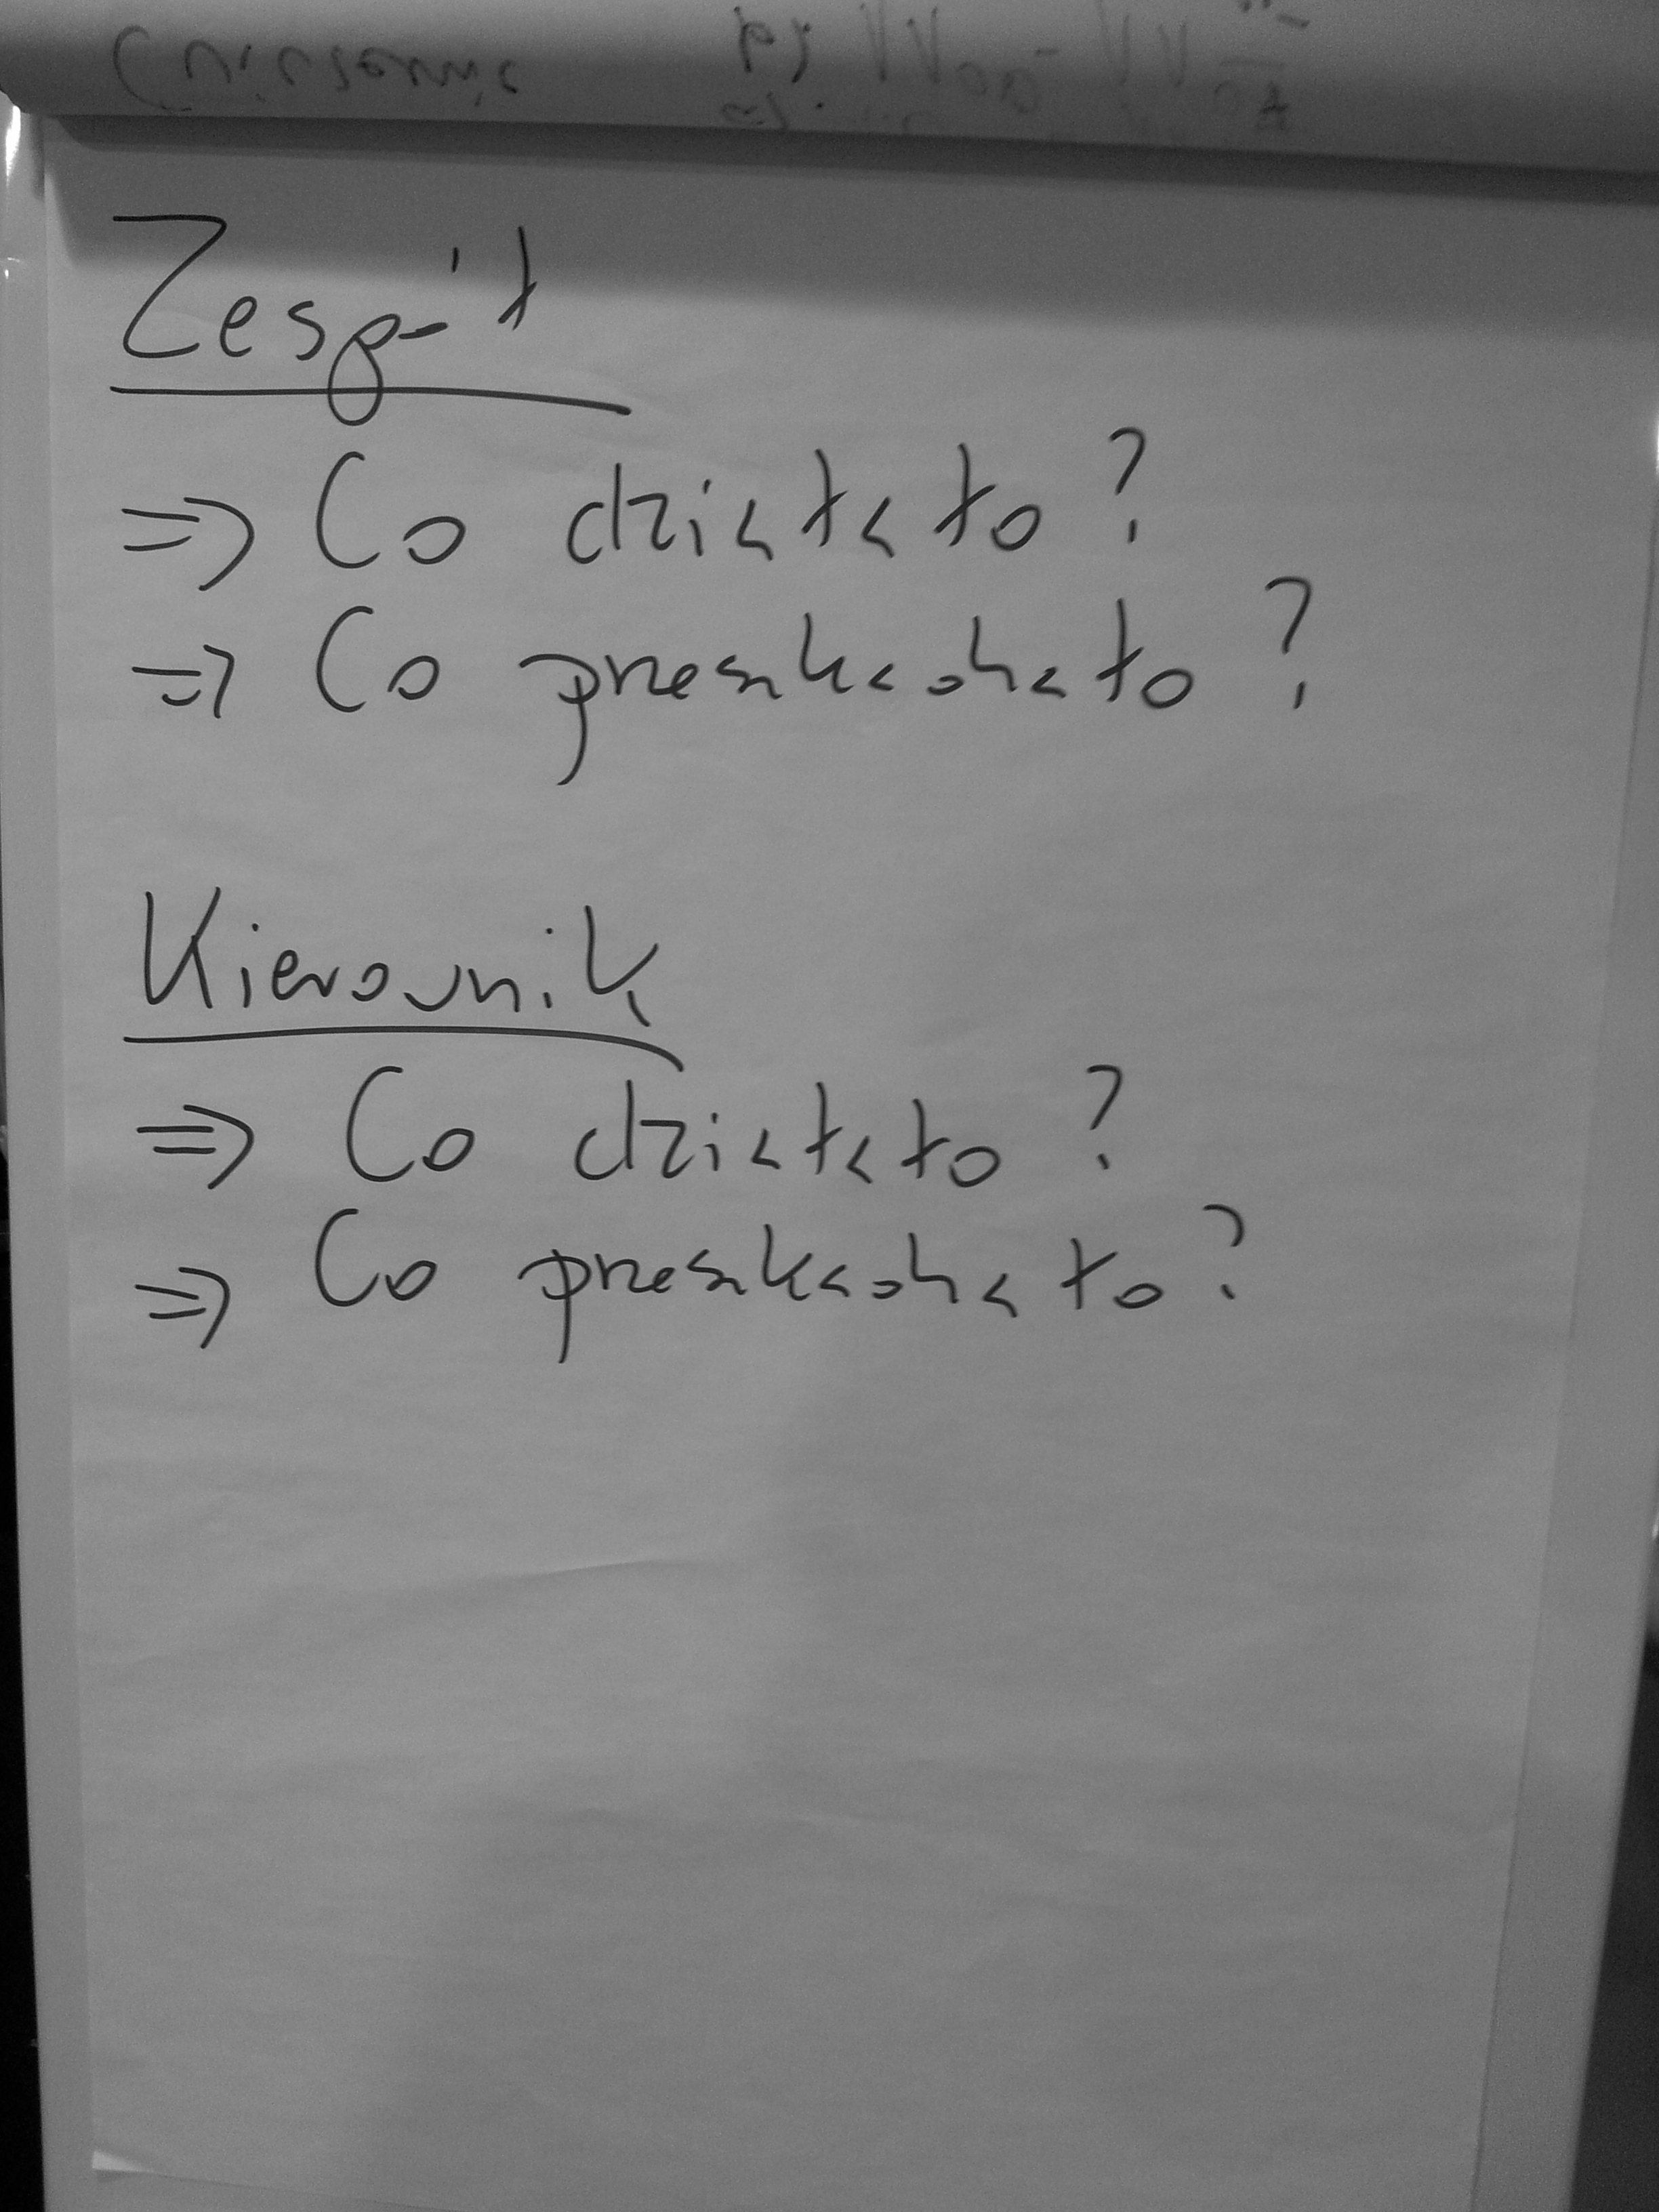 Zespół
⇒ Co działało?
⇒ Co przeszkadzało?
Kierownik
⇒ Co działało?
⇒ Co przeszkadzało?